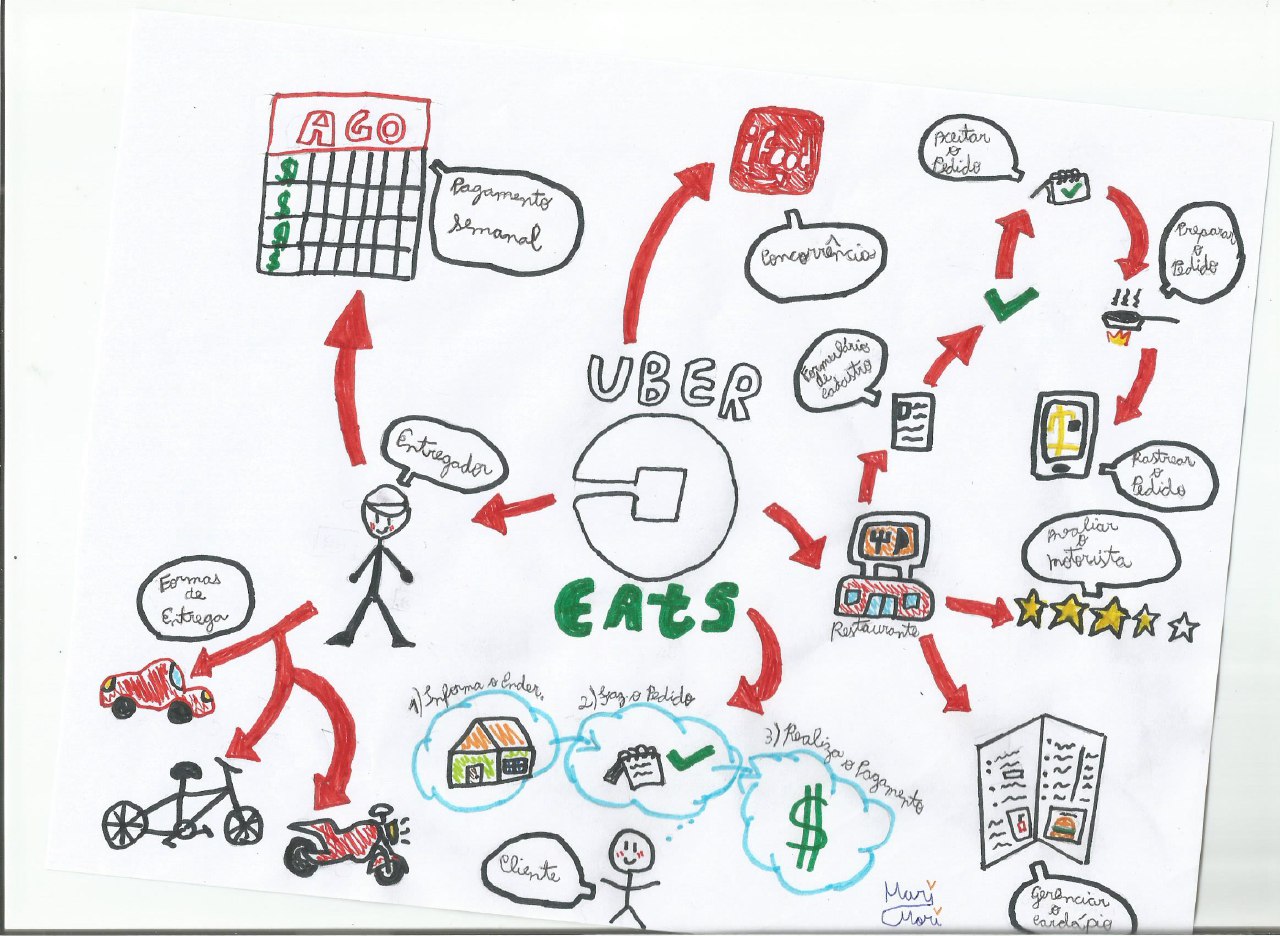 AGO
Pagamento
Semanal
ifood
Concorrência
Aceitar
o
Pedido
Preparar
o
Pedido
Formulários
de
Cadastro
UBER
EAtS
Entregador
Rastrear
o
Pedido
Avaliar
o
Motorista
Restaurante
Formas
de
Entrega
1) Informa o Ender.
2) Faz o Pedido
3) Realiza o Pagamento
$
Cliente
Gerenciar
o
Cardápio
Mari
Mori